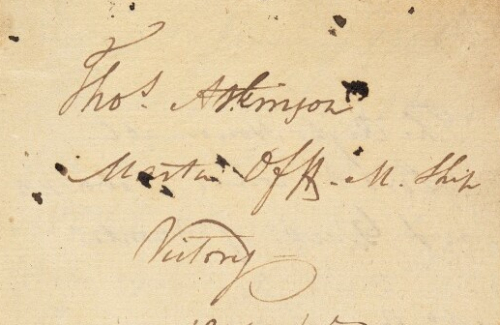 Thos. Atkinson
Master Of H. M. Ship
Victory